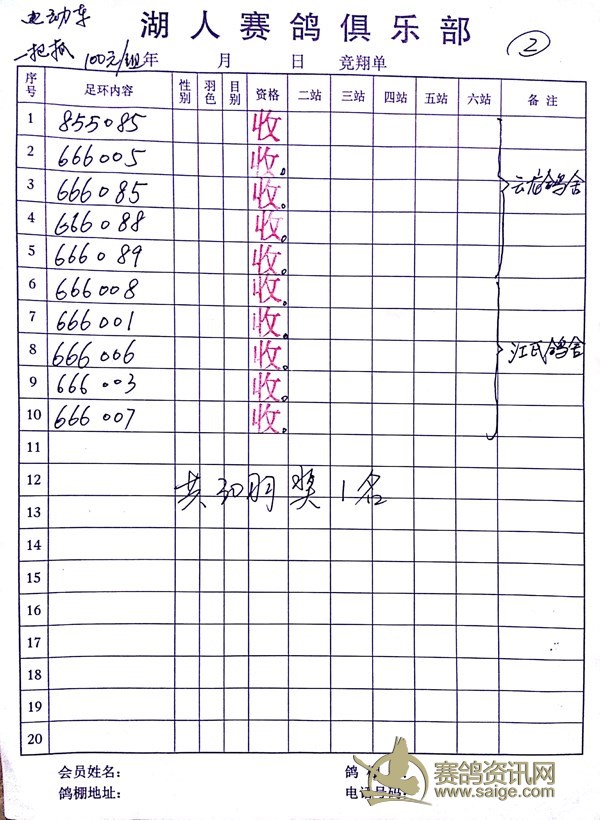 电动车
湖人赛鸽俱乐部
②
一把抓 100元/组 年 月 日 竞翔单
序号 足环内容 性别 羽色 目别 资格 二站 三站 四站 五站 六站 备注
1 855085 收
2 666005 收.
3 666085 收.
4 666088 收.
5 666089 收.
6 666008 收.
7 666001 收.
8 666006 收.
9 666003 收.
10 666007 收.
鸽舍
江氏鸽舍
11
12
共30羽奖1名
13
14
15
16
17
18
19
20
会员姓名：
鸽棚地址：
电话号码：
赛鸽资讯网
www.saige.com